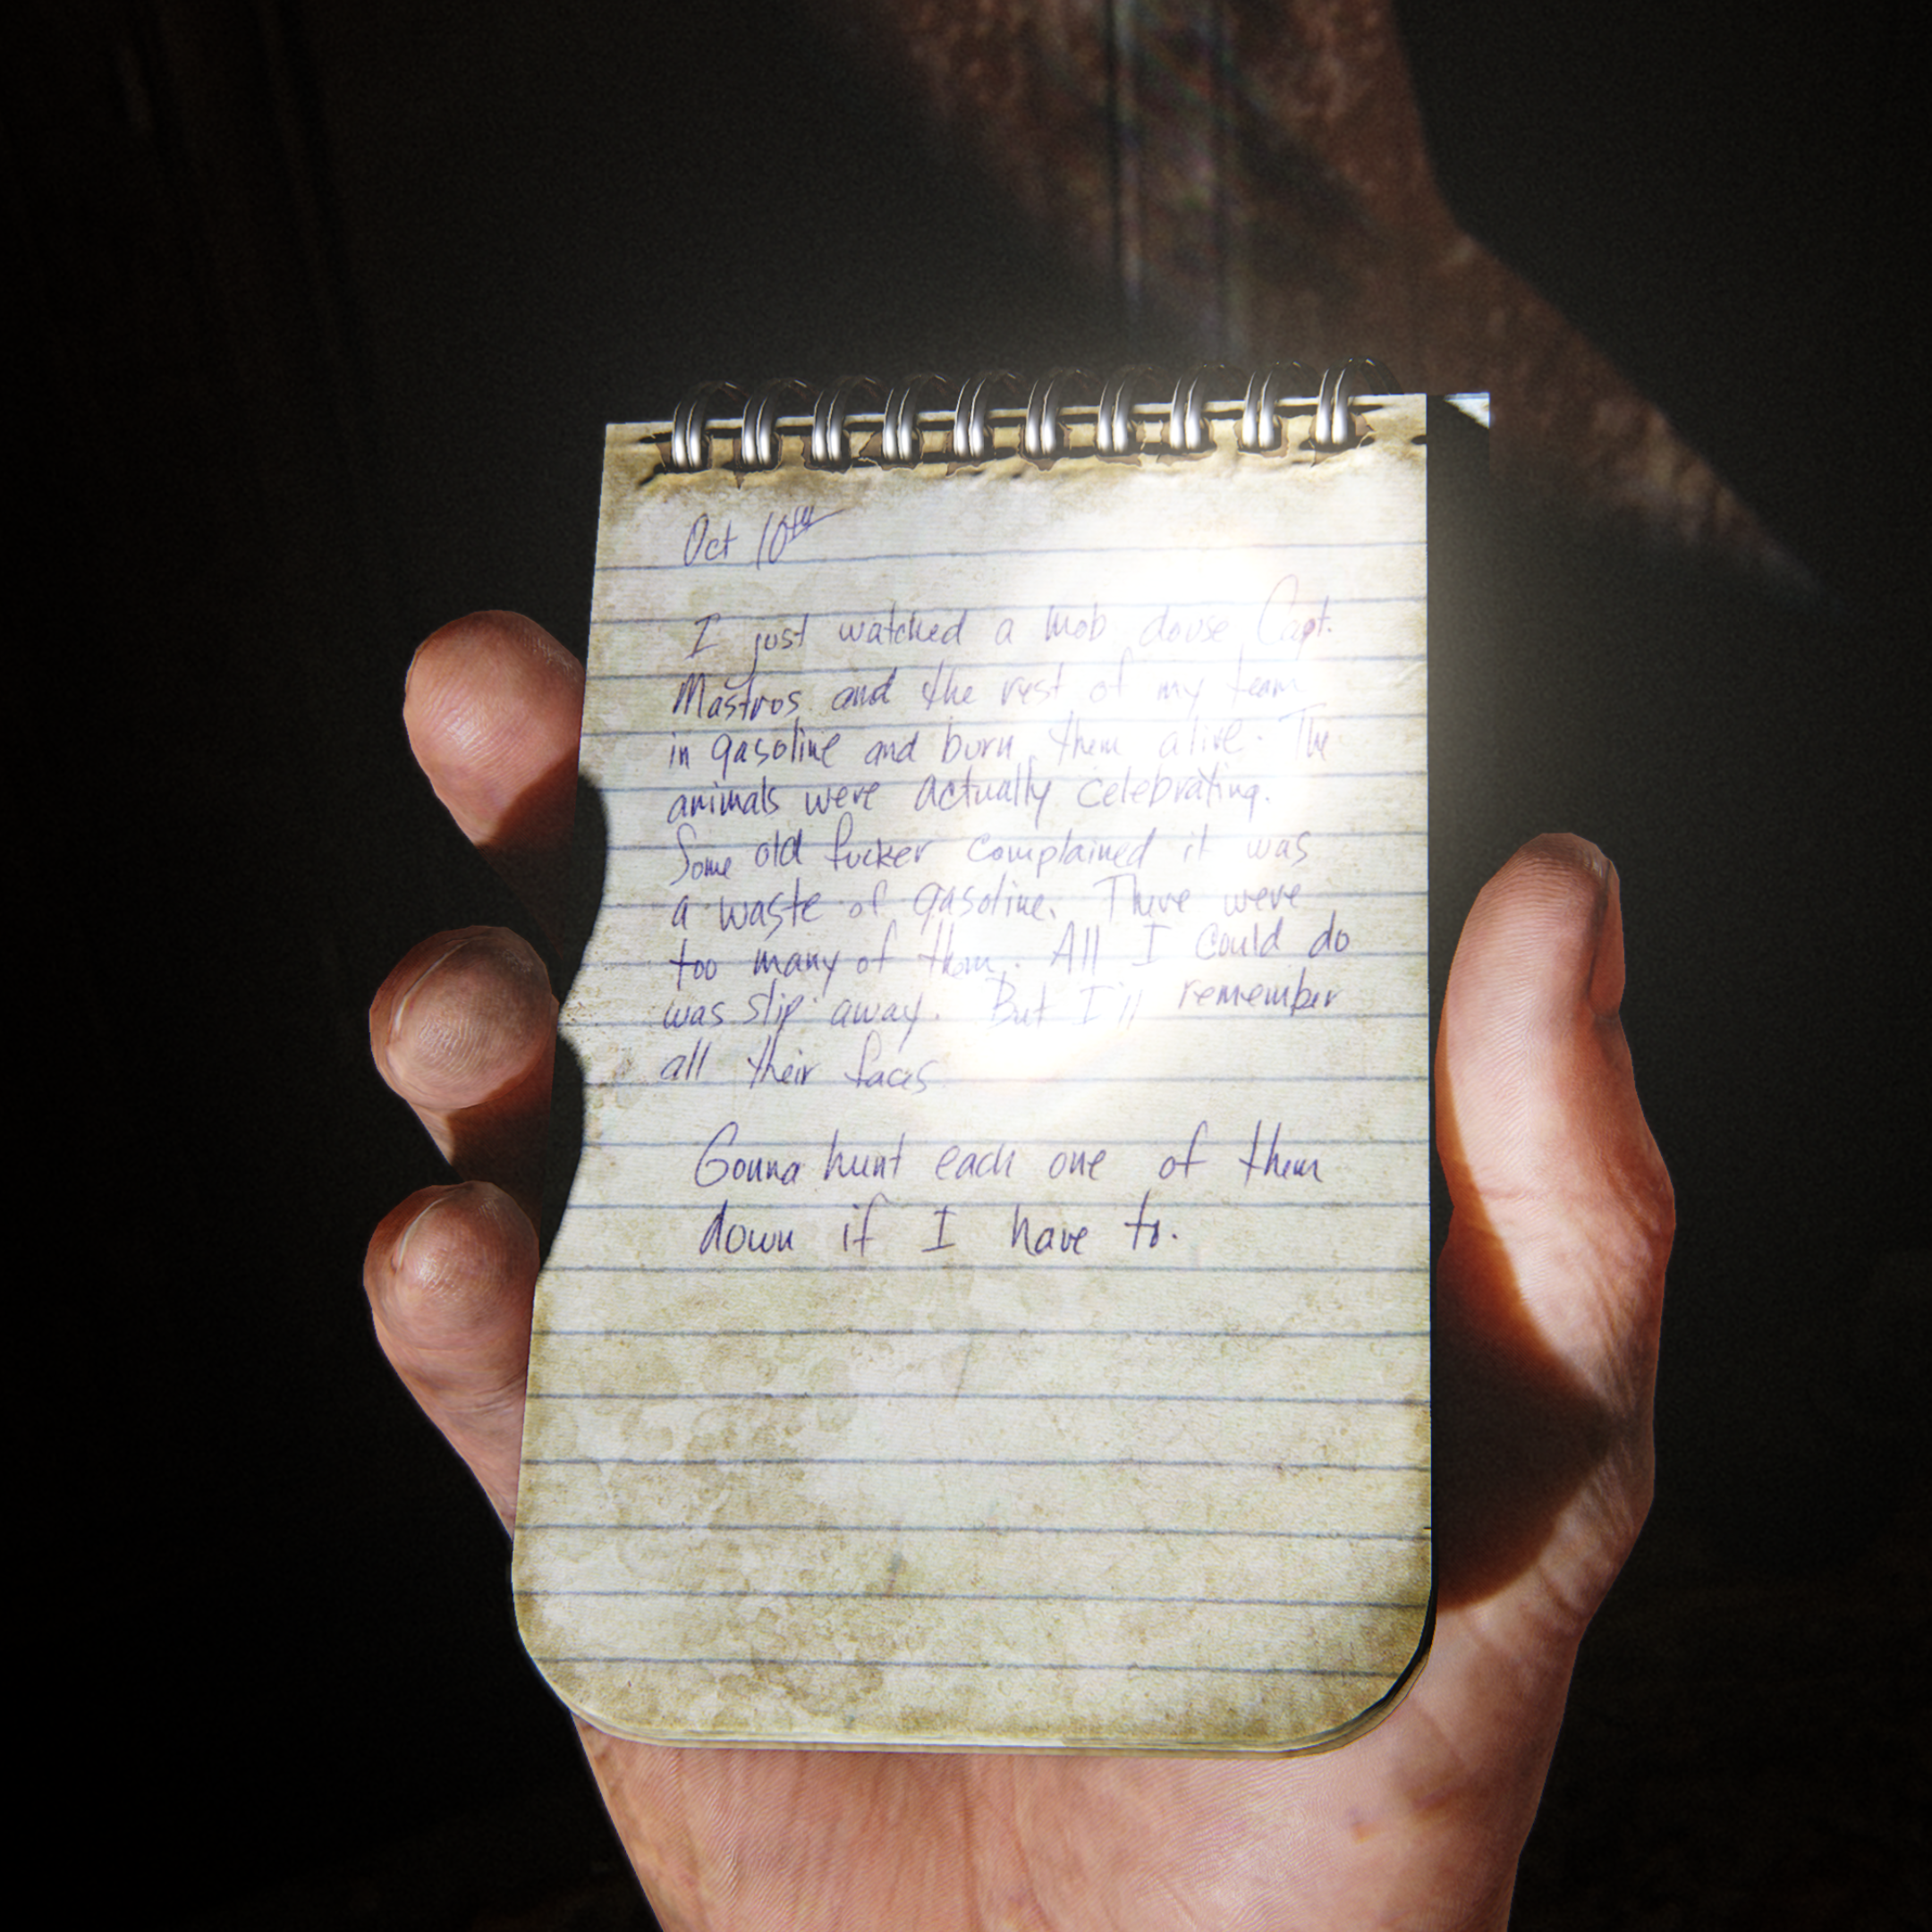 Oct 10th
I just watched a mob douse Capt.
Mastros and the rest of my team
in gasoline and burn them alive. The
animals were actually celebrating.
Some old fucker complained it was
a waste of gasoline. There were
too many of them. All I could do
was slip away. But I'll remember
all their faces
Gonna hunt each one of them
down if I have to.